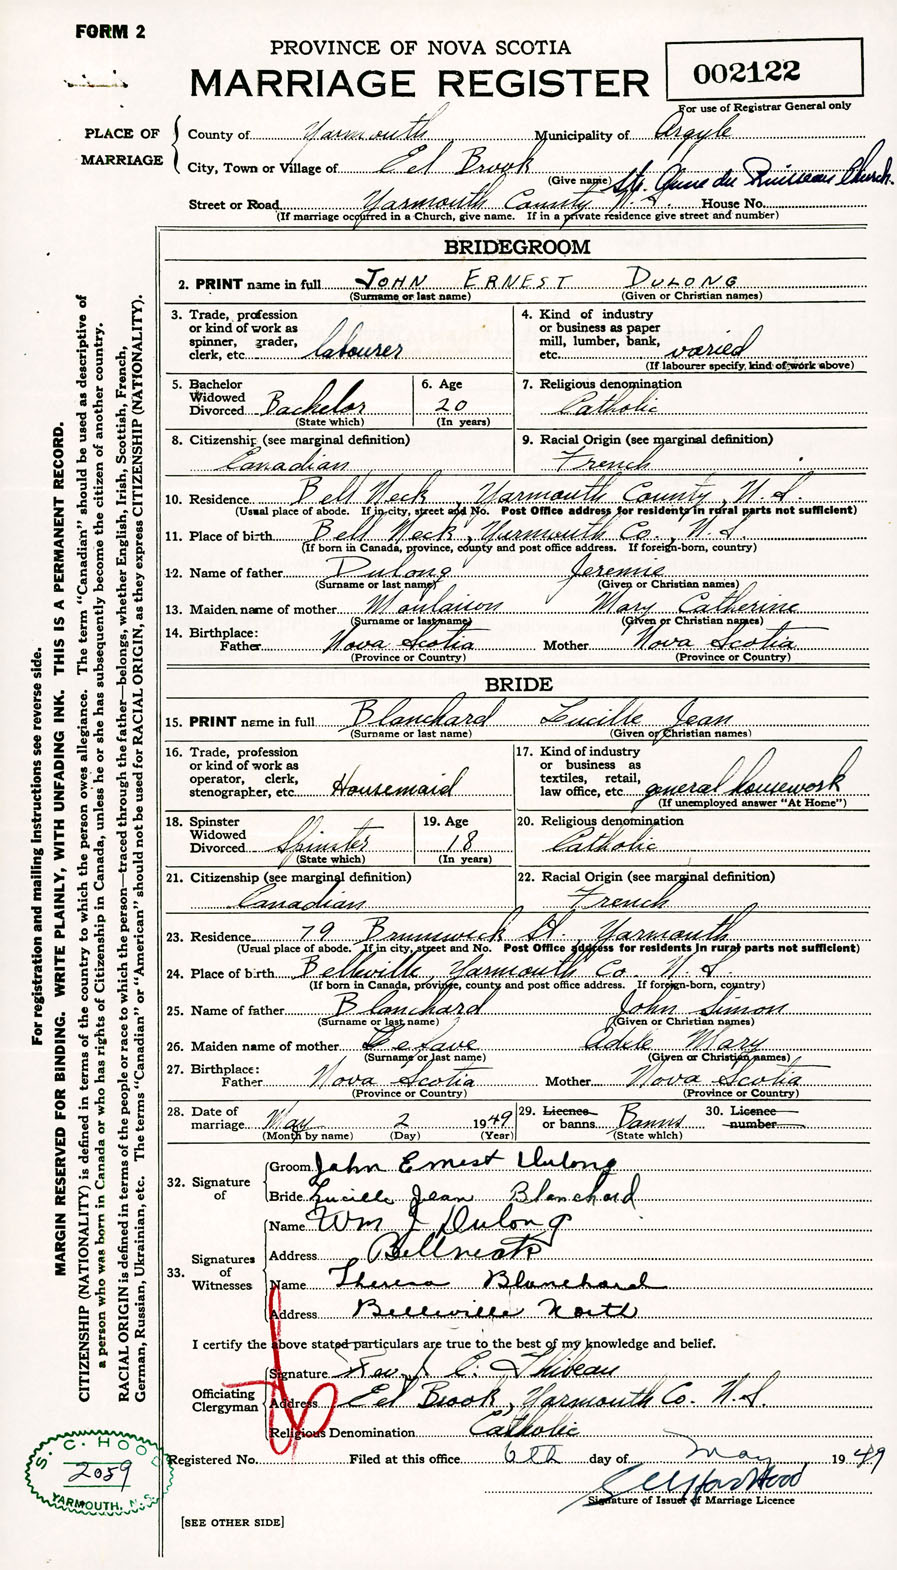 FORM 2
PROVINCE OF NOVA SCOTIA
MARRIAGE REGISTER
002122
For use of Registrar General only
PLACE OF MARRIAGE
County of Yarmouth Municipality of Argyle
City, Town or Village of Eel Brook
(Give name) Ste. Anne du Ruisseau Church.
Street or Road Yarmouth County N. S. House No.
(If marriage occurred in a Church, give name. If in a private residence give street and number)
BRIDEGROOM
2. PRINT name in full JOHN ERNEST DULONG
(Surname or last name) (Given or Christian names)
3. Trade, profession or kind of work as spinner, grader, clerk, etc. labourer
4. Kind of industry or business as paper mill, lumber, bank, etc. varied
(If labourer specify kind of work above)
5. Bachelor Widowed Divorced Bachelor (State which)
6. Age 20 (In years)
7. Religious denomination Catholic
8. Citizenship (see marginal definition) Canadian
9. Racial Origin (see marginal definition) French
10. Residence Bell Neck, Yarmouth County, N. S.
(Usual place of abode. If in city, street and No. Post Office address for residents in rural parts not sufficient)
11. Place of birth Bell Neck, Yarmouth Co., N. S.
(If born in Canada, province, county and post office address. If foreign-born, country)
12. Name of father Dulong Jeremie
(Surname or last name) (Given or Christian names)
13. Maiden name of mother Moulaison Mary Catherine
(Surname or last name) (Given or Christian names)
14. Birthplace: Father Nova Scotia Mother Nova Scotia
(Province or Country) (Province or Country)
BRIDE
15. PRINT name in full Blanchard Lucille Jean
(Surname or last name) (Given or Christian names)
16. Trade, profession or kind of work as operator, clerk, stenographer, etc. Housemaid
17. Kind of industry or business as textiles, retail, law office, etc. general housework
(If unemployed answer "At Home")
18. Spinster Widowed Divorced Spinster (State which)
19. Age 18 (In years)
20. Religious denomination Catholic
21. Citizenship (see marginal definition) Canadian
22. Racial Origin (see marginal definition) French
23. Residence 79 Brunswick St. Yarmouth
(Usual place of abode. If in city, street and No. Post Office address for residents in rural parts not sufficient)
24. Place of birth Belleville, Yarmouth Co. N. S.
(If born in Canada, province, county and post office address. If foreign-born, country)
25. Name of father Blanchard John Simon
(Surname or last name) (Given or Christian names)
26. Maiden name of mother LeFave Adele Mary
(Surname or last name) (Given or Christian names)
27. Birthplace: Father Nova Scotia Mother Nova Scotia
(Province or Country) (Province or Country)
28. Date of marriage May 2 1949
(Month by name) (Day) (Year)
29. Licence or banns Banns (State which)
30. Licence number
32. Signature of
Groom John Ernest Dulong
Bride Lucille Jean Blanchard
33. Signatures of Witnesses
Name Wm J Dulong
Address Bellneck
Name Theresa Blanchard
Address Belleville North
I certify the above stated particulars are true to the best of my knowledge and belief.
Officiating Clergyman
Signature Rev. L. C. Thibeau
Address Eel Brook, Yarmouth Co. N. S.
Religious Denomination Catholic
Registered No. Filed at this office 6th day of May 1949
Signature of Issuer of Marriage Licence
[SEE OTHER SIDE]
S. C. HOOD
2059
YARMOUTH, N.S.
For registration and mailing instructions see reverse side.
MARGIN RESERVED FOR BINDING. WRITE PLAINLY, WITH UNFADING INK. THIS IS A PERMANENT RECORD.
CITIZENSHIP (NATIONALITY) is defined in terms of the country to which the person owes allegiance. The term "Canadian" should be used as descriptive of
a person who was born in Canada or who has rights of Citizenship in Canada, unless he or she has subsequently become the citizen of another country.
RACIAL ORIGIN is defined in terms of the people or race to which the person—traced through the father—belongs, whether English, Irish, Scottish, French,
German, Russian, Ukrainian, etc. The terms "Canadian" or "American" should not be used for RACIAL ORIGIN, as they express CITIZENSHIP (NATIONALITY).